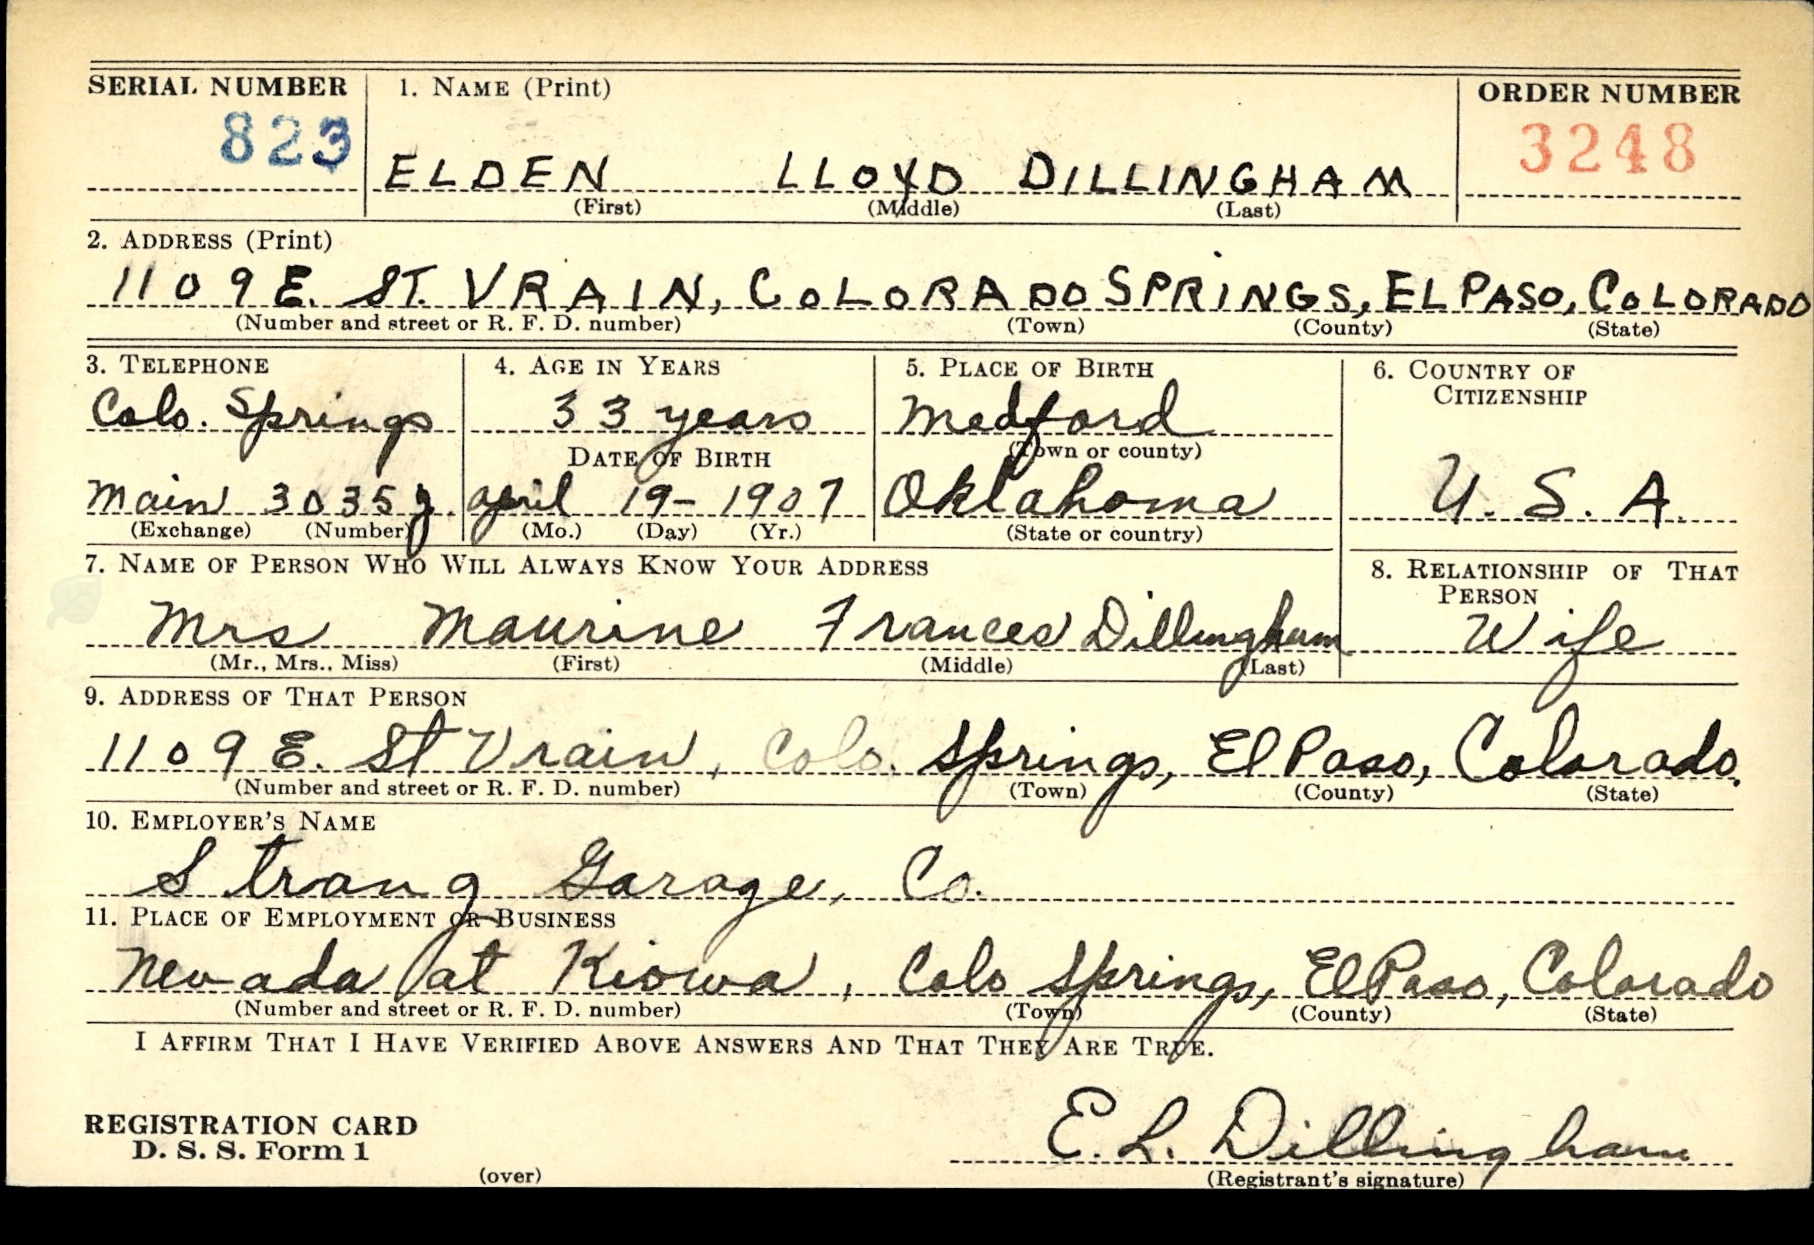 SERIAL NUMBER 1. NAME (Print) ORDER NUMBER
823 ELDEN LLOYD DILLINGHAM 3248
(First) (Middle) (Last)
2. ADDRESS (Print)
1109 E. ST. VRAIN, COLORADO SPRINGS, EL PASO, COLORADO
(Number and street or R. F. D. number) (Town) (County) (State)
3. TELEPHONE 4. AGE IN YEARS 5. PLACE OF BIRTH 6. COUNTRY OF
CITIZENSHIP
Colo. Springs 33 years Medford
DATE OF BIRTH (Town or county)
Main 3035 J. April 19- 1907 Oklahoma U. S. A.
(Exchange) (Number) (Mo.) (Day) (Yr.) (State or country)
7. NAME OF PERSON WHO WILL ALWAYS KNOW YOUR ADDRESS 8. RELATIONSHIP OF THAT
PERSON
Mrs Maurine Frances Dillingham Wife
(Mr., Mrs., Miss) (First) (Middle) (Last)
9. ADDRESS OF THAT PERSON
1109 E. St Vrain, Colo. Springs, El Paso, Colorado.
(Number and street or R. F. D. number) (Town) (County) (State)
10. EMPLOYER'S NAME
Strang Garage, Co.
11. PLACE OF EMPLOYMENT OR BUSINESS
Nevada at Kiowa, Colo Springs, El Paso, Colorado
(Number and street or R. F. D. number) (Town) (County) (State)
I AFFIRM THAT I HAVE VERIFIED ABOVE ANSWERS AND THAT THEY ARE TRUE.
REGISTRATION CARD
D. S. S. Form 1 E. L. Dillingham
(over) (Registrant's signature)